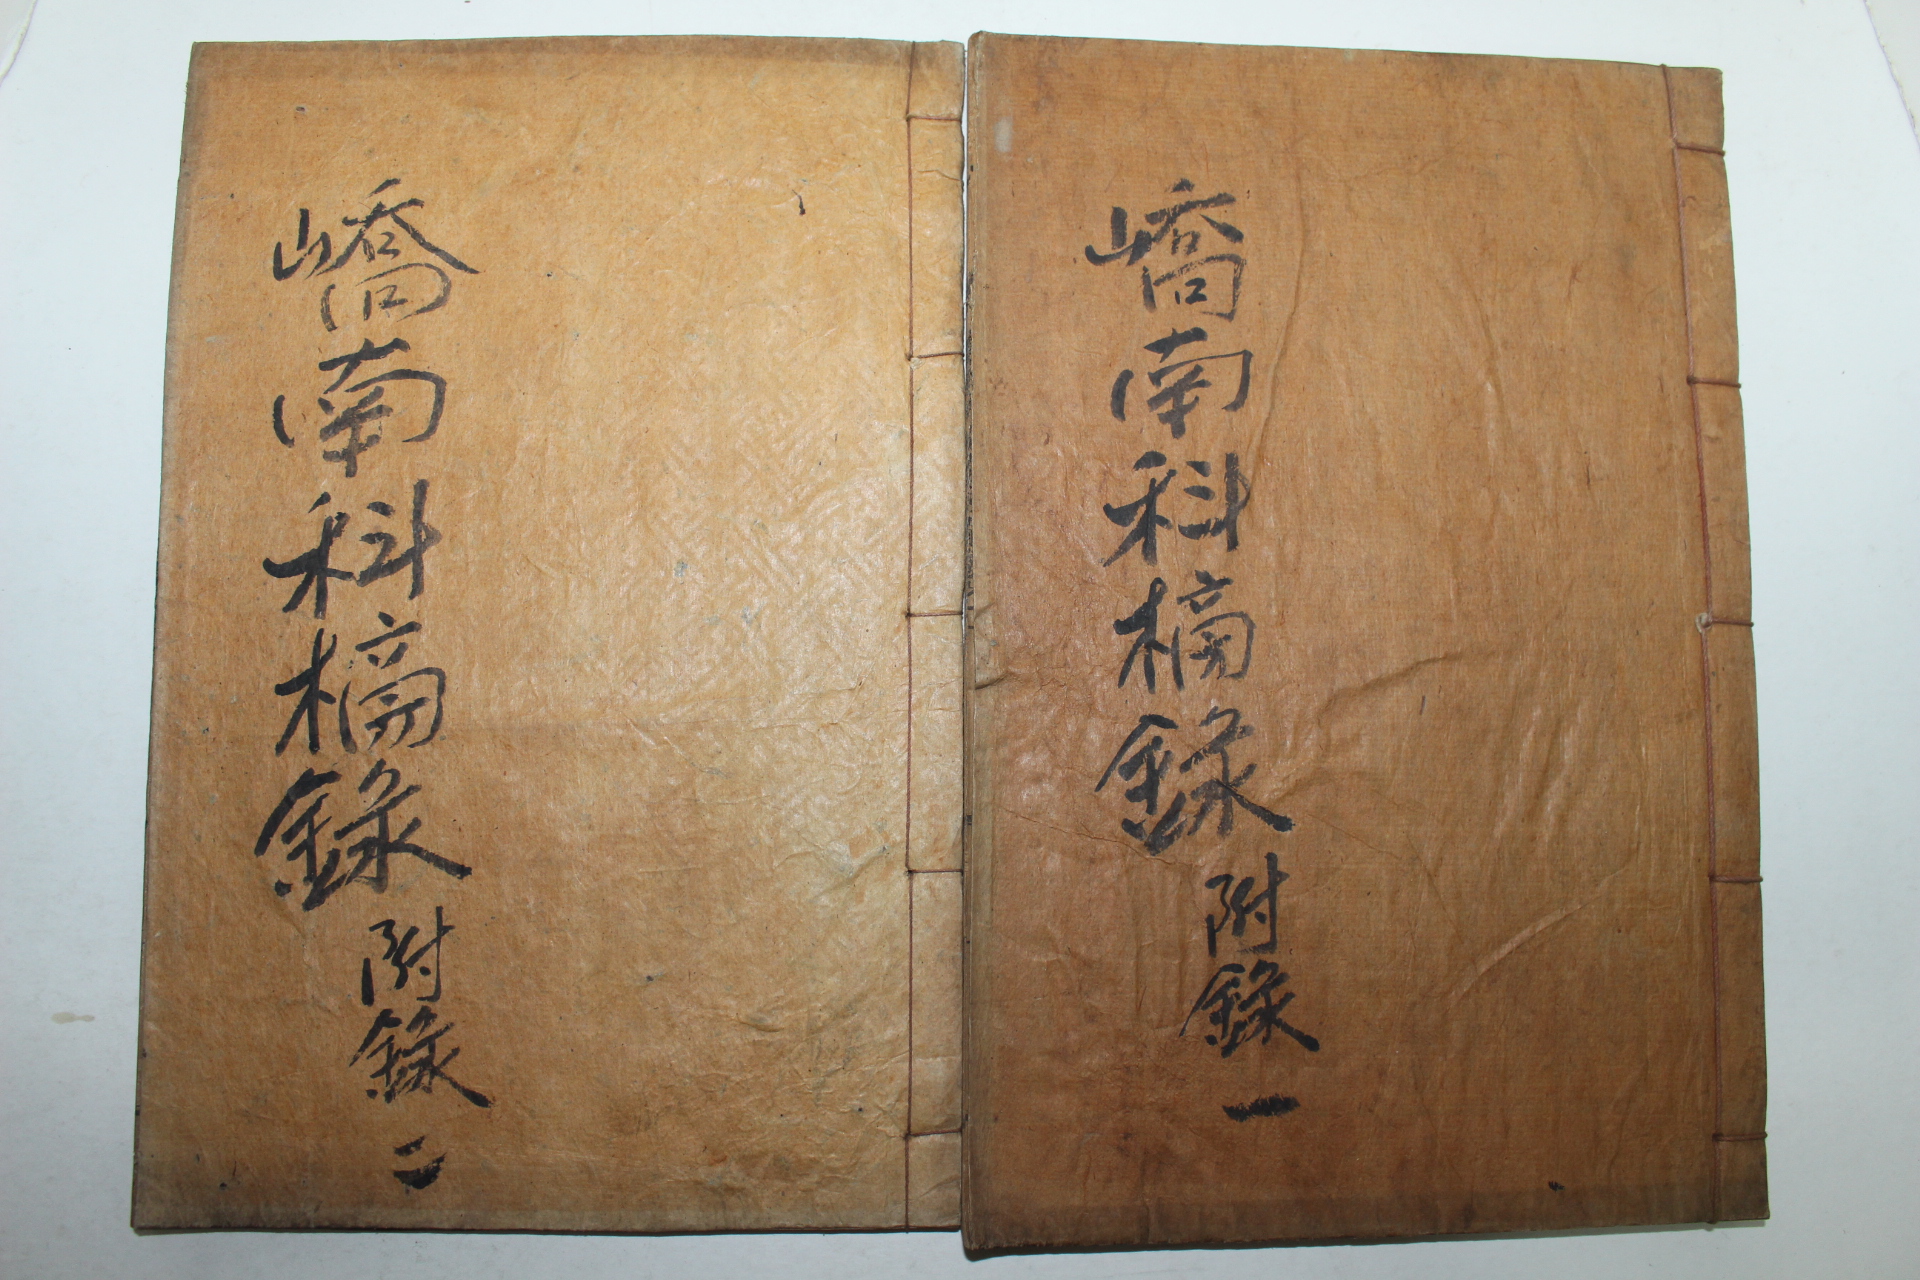 嶠南科榜錄 附錄 一
嶠南科榜錄 附錄 二